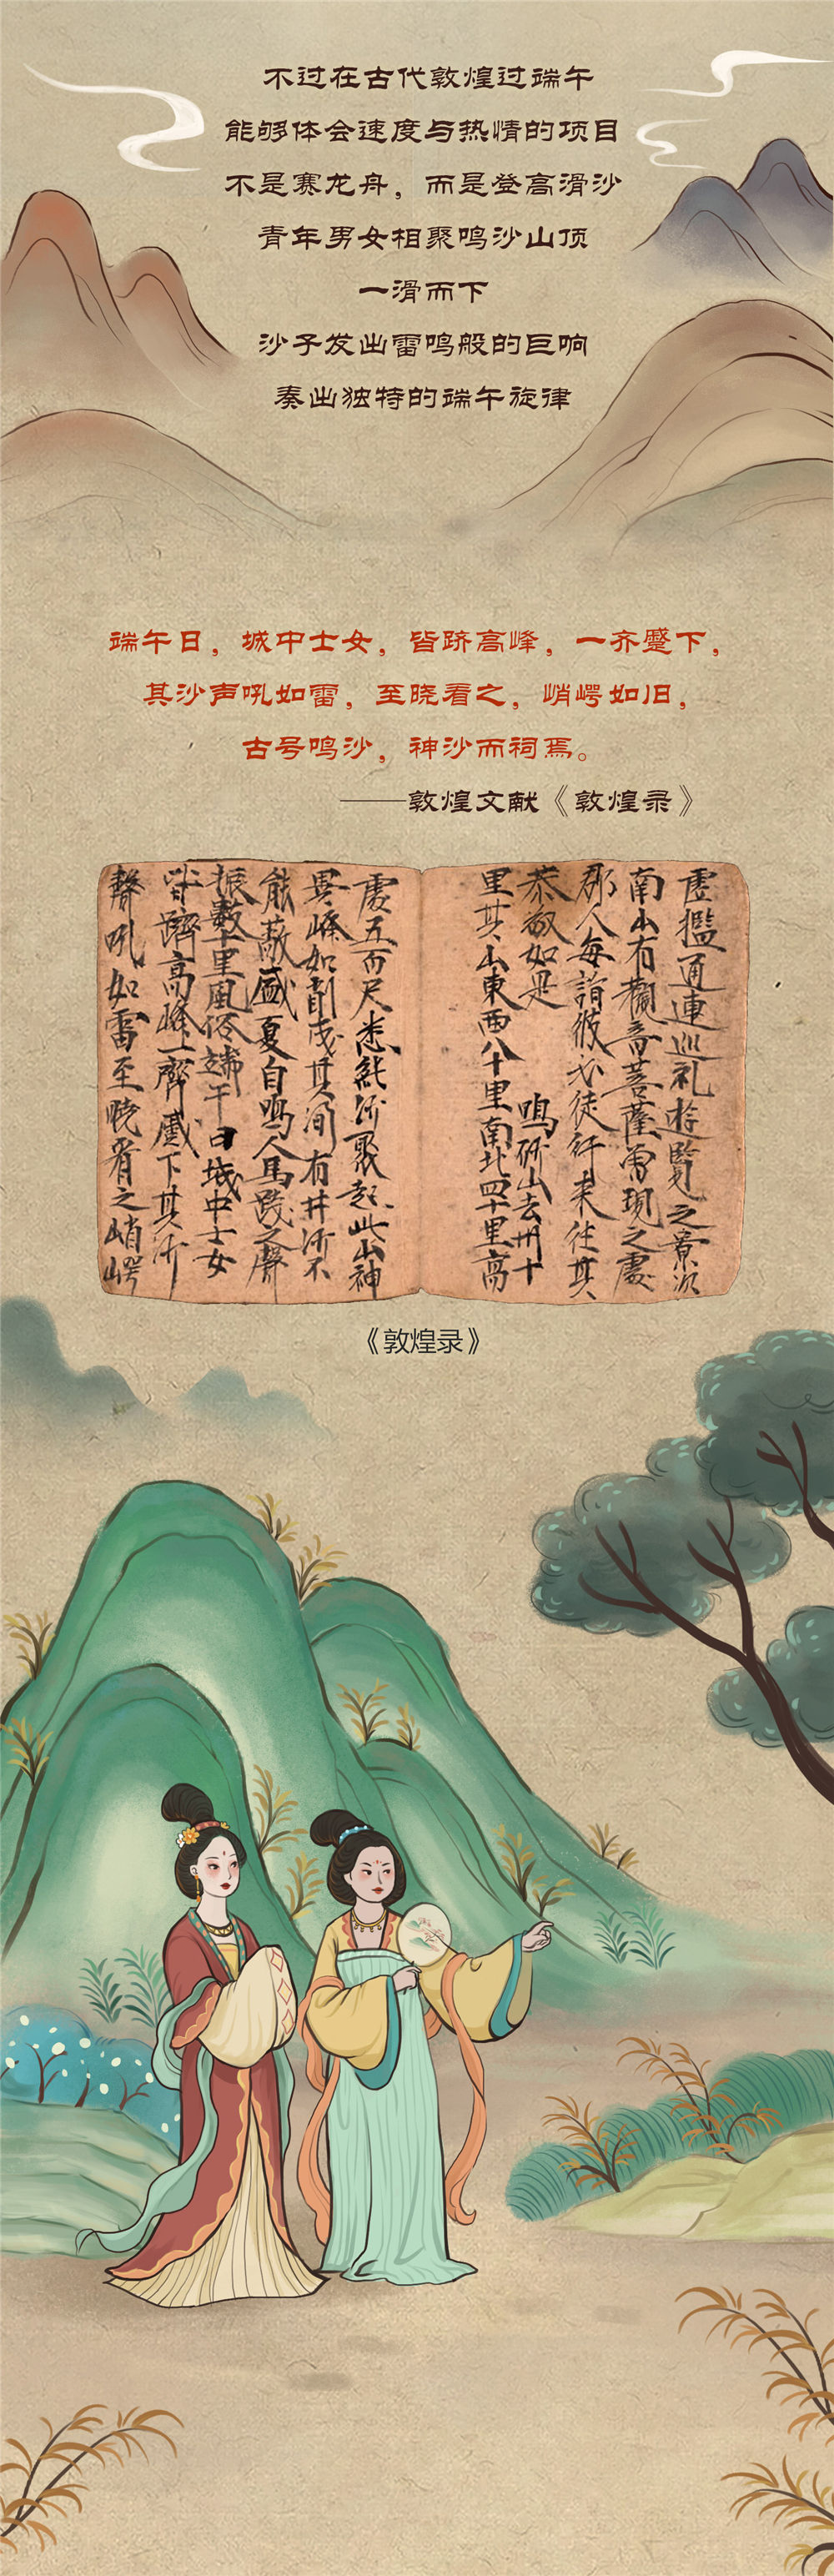 不过在古代敦煌过端午
能够体会速度与热情的项目
不是赛龙舟，而是登高滑沙
青年男女相聚鸣沙山顶
一滑而下
沙子发出雷鸣般的巨响
奏出独特的端午旋律
端午日，城中士女，皆跻高峰，一齐蹙下，
其沙声吼如雷，至晓看之，峭崿如旧，
古号鸣沙，神沙而祠焉。
——敦煌文献《敦煌录》
虚檻通連巡礼遊覽之景次
南山有觀音菩薩曾現之處
郡人每詣彼必徒行来往其
恭敬如是 鳴沙山去州十
里其山東西八十里南北四十里高
處五百尺悉純沙聚起此山神
異峰如削成其間有井沙不
能蔽盛夏自鳴人馬踐之聲
振數十里風俗端午日城中士女
皆躋高峰一齊蹙下其沙
聲吼如雷至曉看之峭崿
《敦煌录》